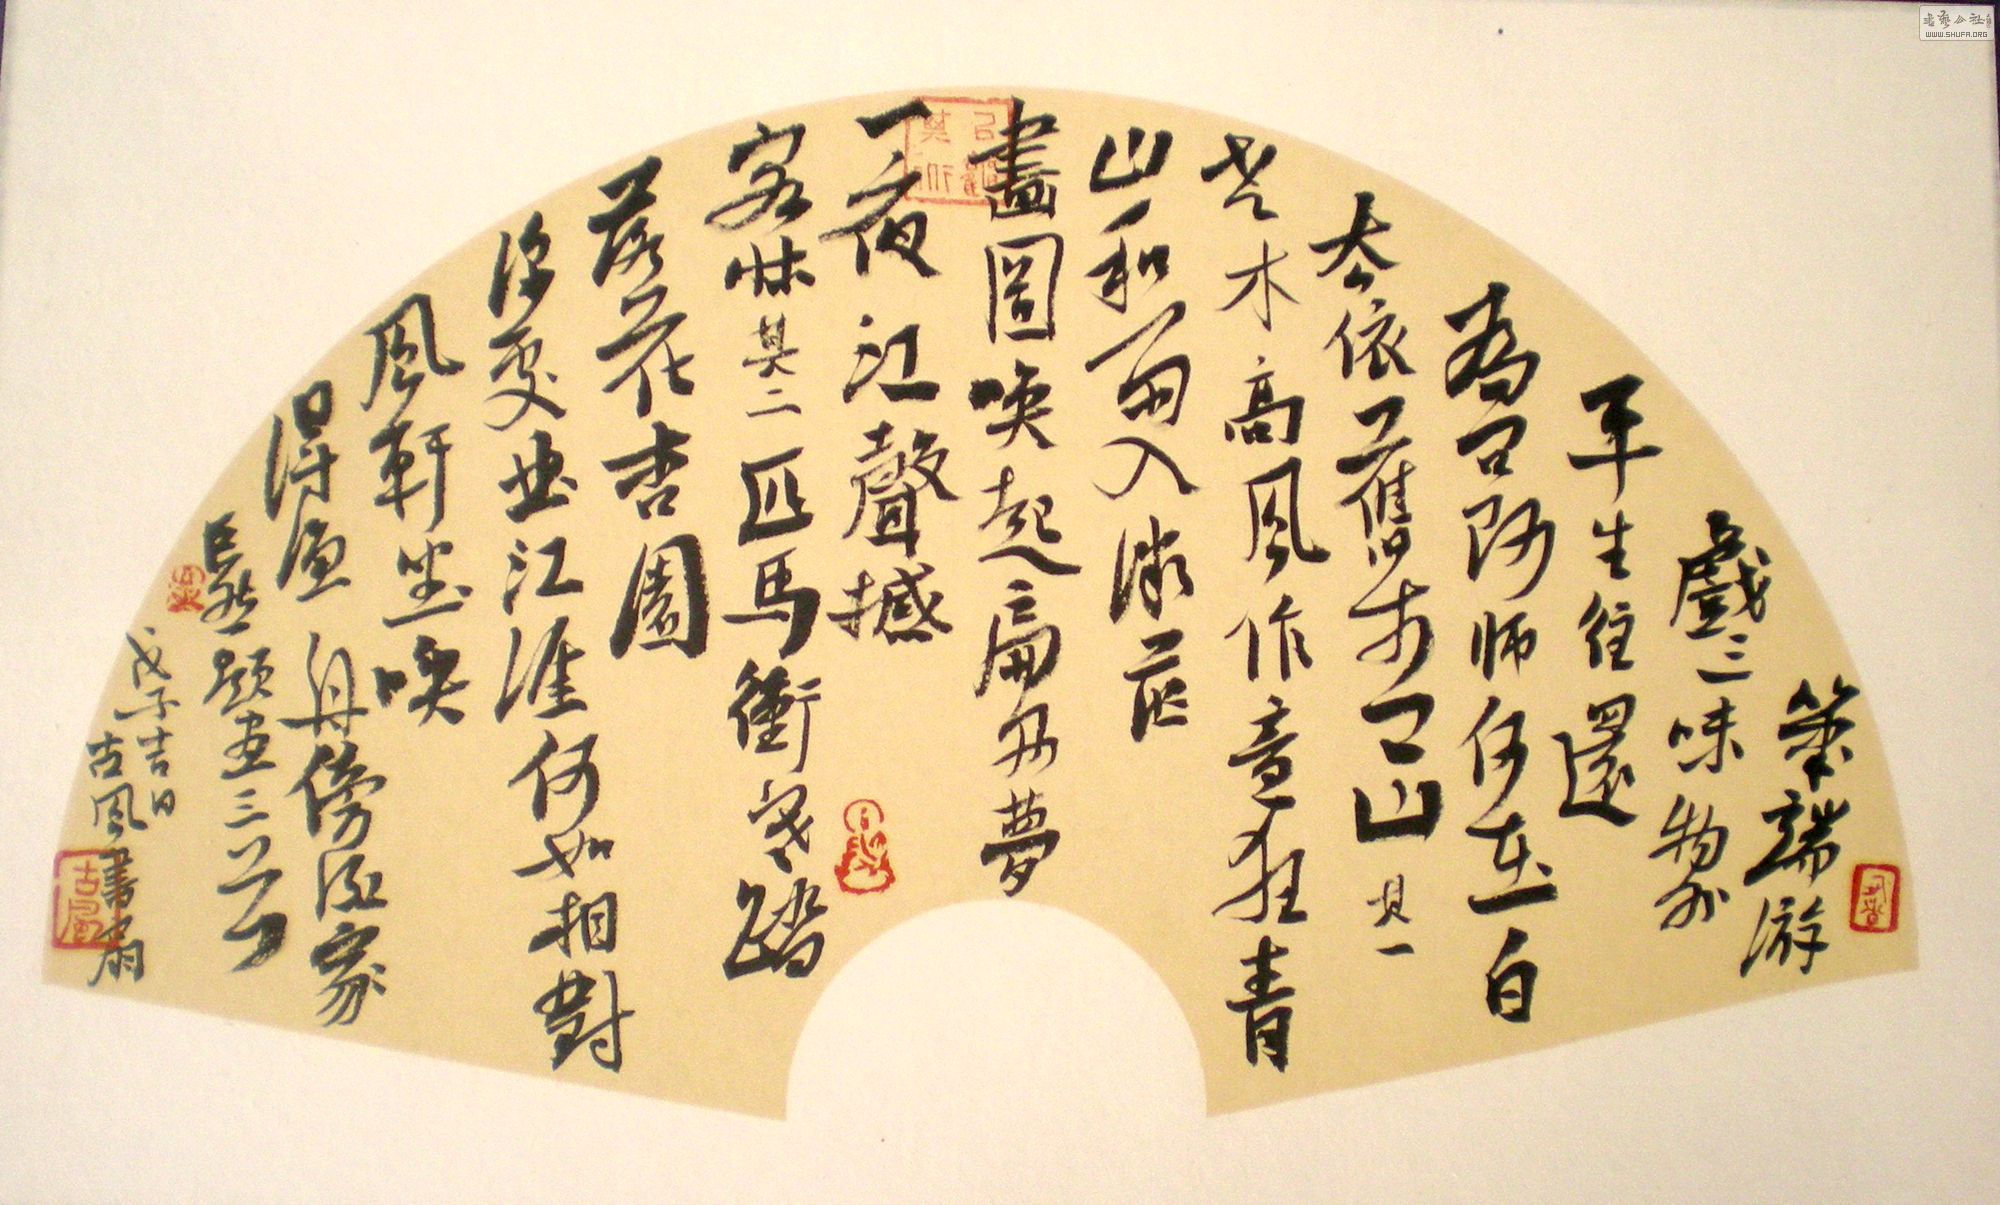 筆端游
戲三昧物外
平生往還
為問阿師何在白
雲依舊青山其一
老木高風作意狂青
山和雨入微茫
畫圖喚起扁舟夢
一夜江聲撼
客牀其二匹馬衝寒踏
落花杏園
深處曲江涯何如相對
風軒坐喚
得漁舟傍酒家
巨然題畫三首
戊子吉日
古風書扇
古風
WWW.SHUFA.ORG